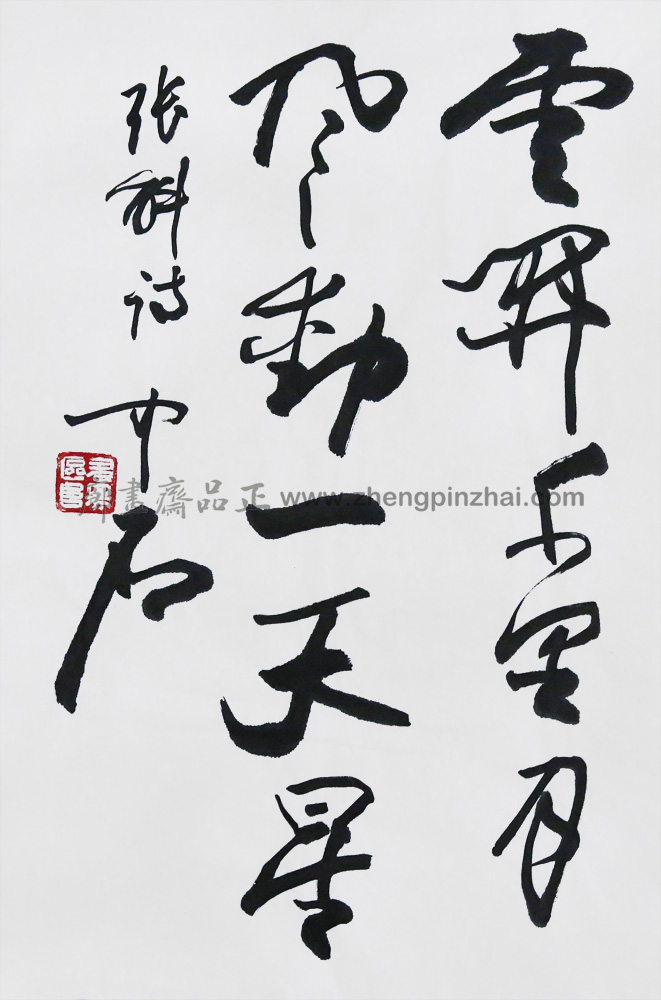 雲開千里月
風動一天星
張斛詩
中石
正品齋書畫 www.zhengpinzhai.com